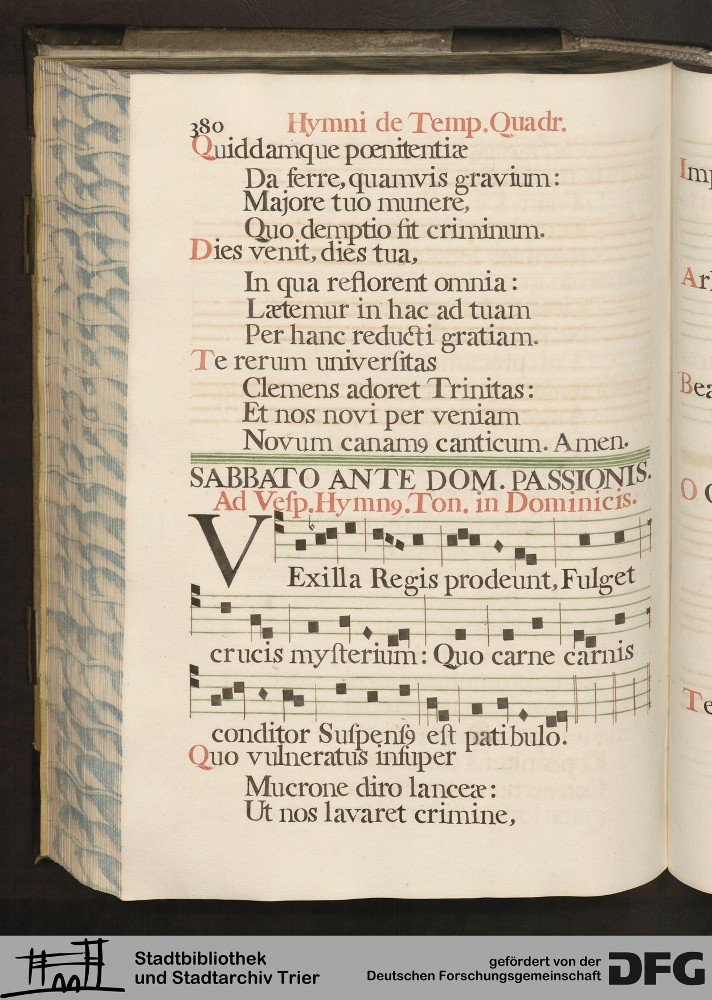 380 Hymni de Temp. Quadr.
Quiddamque pœnitentiæ
Da ferre, quamvis gravium:
Majore tuo munere,
Quo demptio ſit criminum.
Dies venit, dies tua,
In qua reflorent omnia:
Lætemur in hac ad tuam
Per hanc reducti gratiam.
Te rerum univerſitas
Clemens adoret Trinitas:
Et nos novi per veniam
Novum canamꝯ canticum. Amen.
SABBATO ANTE DOM. PASSIONIS.
Ad Veſp. Hymnꝯ. Ton. in Dominicis.
VExilla Regis prodeunt, Fulget
crucis myſterium: Quo carne carnis
conditor Suſpenſꝯ eſt patibulo.
Quo vulneratus inſuper
Mucrone diro lanceæ:
Ut nos lavaret crimine,
Imp
Bea
O
Te
Stadtbibliothek
und Stadtarchiv Trier
gefördert von der
Deutschen Forschungsgemeinschaft
DFG